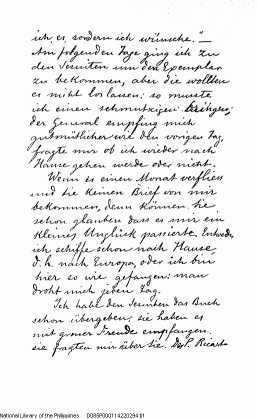 ich es, sondern ich wünsche."—
Am folgenden Tage ging ich zu
den Jesuiten um den Exemplar
zu bekommen, aber die wollten
es nicht loslassen; so musste
ich einen schmutzigen
der General empfing mich
gutmütlicher wie den vorigen Tag,
fragte mir ob ich wieder nach
Hause gehen werde oder nicht.
Wenn es einen Monat verfliess
und Sie keinen Brief von mir
bekommen, dann können Sie
schon glauben dass es mir ein
kleines Unglück passierte. Entweder
ich schiffe schon nach Hause
d.h. nach Europa, oder ich bin
hier so wie gefangen; man
droht mich jeden Tag.
Ich habe den Jesuiten das Buch
schon übergeben; sie haben es
mit grosser Freude empfangen.
sie fragten mir über Sie.
National Library of the Philippines